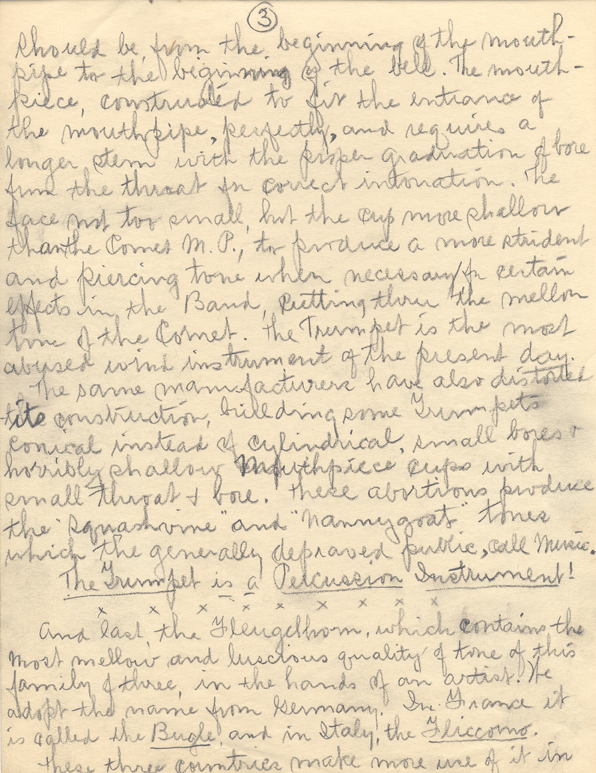 ③
should be, from the beginning of the mouth-
pipe to the beginning of the bell. The mouth-
piece, constructed to fit the entrance of
the mouthpipe, perfectly, and requires a
longer stem with the proper graduation of bore
from the throat for correct intonation. The
face not too small, but the cup more shallow
than the Cornet M.P., to produce a more strident
and piercing tone when necessary for certain
effects in the Band, cutting thru the mellow
tone of the Cornet. The Trumpet is the most
abused wind instrument of the present day.
The same manufacturers have also distorted
its construction, building some Trumpets
conical instead of cylindrical, small bores &
horribly shallow Mouthpiece cups with
small throat & bore. These abortions produce
the "Squashvine" and "Nannygoat" tones
which the generally depraved public, call Music.
The Trumpet is a Percussion Instrument!
x x x x x x x x x
And last, the Fleugelhorn, which contains the
most mellow and luscious quality of tone of this
family of three, in the hands of an artist. We
adopt the name from Germany. In France it
is called the Bugle, and in Italy, the Fliccorno.
These three countries make more use of it in